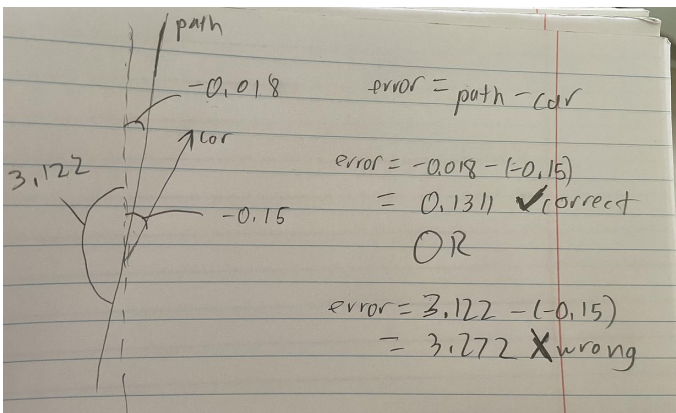 path
-0.018
car
3.122
-0.15
error = path - car
error = -0.018 - (-0.15)
= 0.1311 ✓correct
OR
error = 3.122 - (-0.15)
= 3.272 X wrong